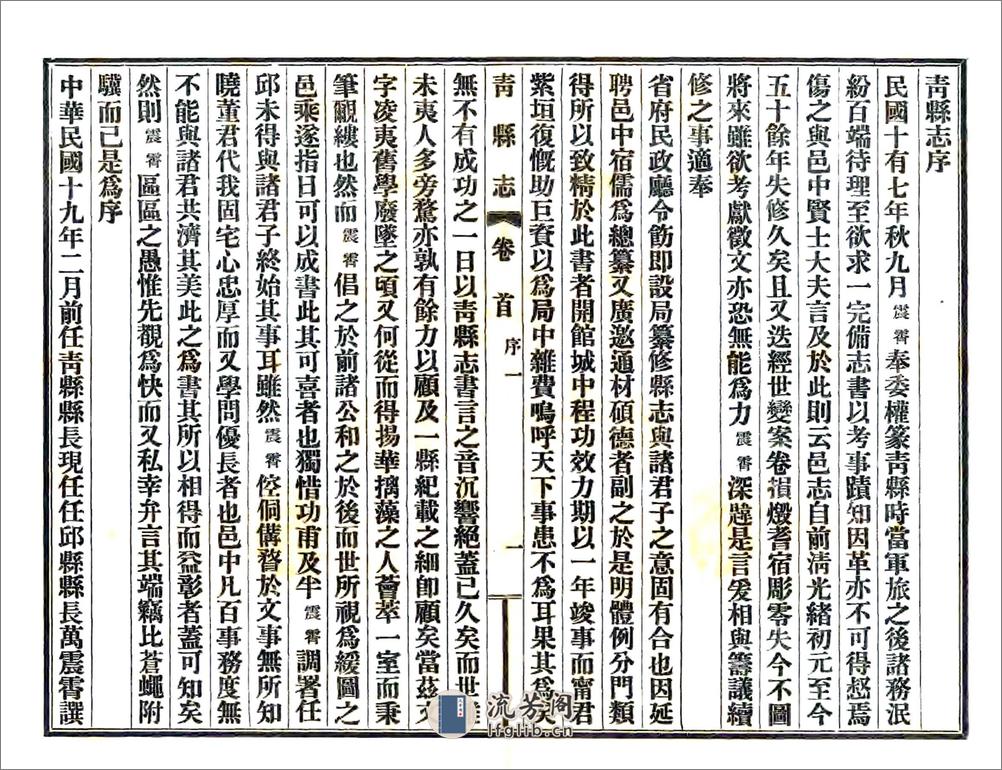 靑縣志序
民國十有七年秋九月震霄奉委權篆靑縣時當軍旅之後諸務泯
紛百端待理至欲求一完備志書以考事蹟知因革亦不可得惄焉
傷之與邑中賢士大夫言及於此則云邑志自前淸光緒初元至今
五十餘年失修久矣且又迭經世變案卷損燬耆宿彫零失今不圖
將來雖欲考獻徵文亦恐無能爲力震霄深韙是言爰相與籌議續
修之事適奉
省府民政廳令飭即設局纂修縣志與諸君子之意固有合也因延
聘邑中宿儒爲總纂又廣邀通材碩德者副之於是明體例分門類
得所以致精於此書者開館城中程功效力期以一年竣事而甯君
紫垣復慨助巨賚以爲局中雜費嗚呼天下事患不爲耳果其爲
靑縣志
卷首
序一
一
無不有成功之一日以靑縣志書言之音沉響絕蓋已久矣而世
未夷人多旁騖亦孰有餘力以顧及一縣紀載之細卽顧矣當茲
字凌夷舊學廢墜之頃又何從而得揚華摛藻之人薈萃一室而秉
筆覼縷也然而震霄倡之於前諸公和之於後而世所視爲緩圖之
邑乘遂指日可以成書此其可喜者也獨惜功甫及半震霄調署任
邱未得與諸君子終始其事耳雖然震霄倥侗傋瞀於文事無所知
曉董君代我固宅心忠厚而又學問優長者也邑中凡百事務度無
不能與諸君共濟其美此之爲書其所以相得而益彰者蓋可知矣
然則震霄區區之愚惟先覩爲快而又私幸弁言其端竊比蒼蠅附
驥而已是爲序
中華民國十九年二月前任靑縣縣長現任任邱縣縣長萬震霄譔
流芳阁
lfglib.cn